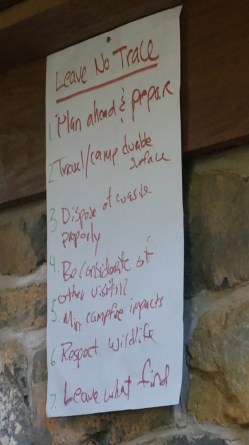 Leave No Trace
1. Plan ahead & prepare
2. Travel/camp durable
surface
3. Dispose of waste
properly
4. Be considerate of
other visitors
5. Min campfire impacts
6. Respect wildlife
7. Leave what find